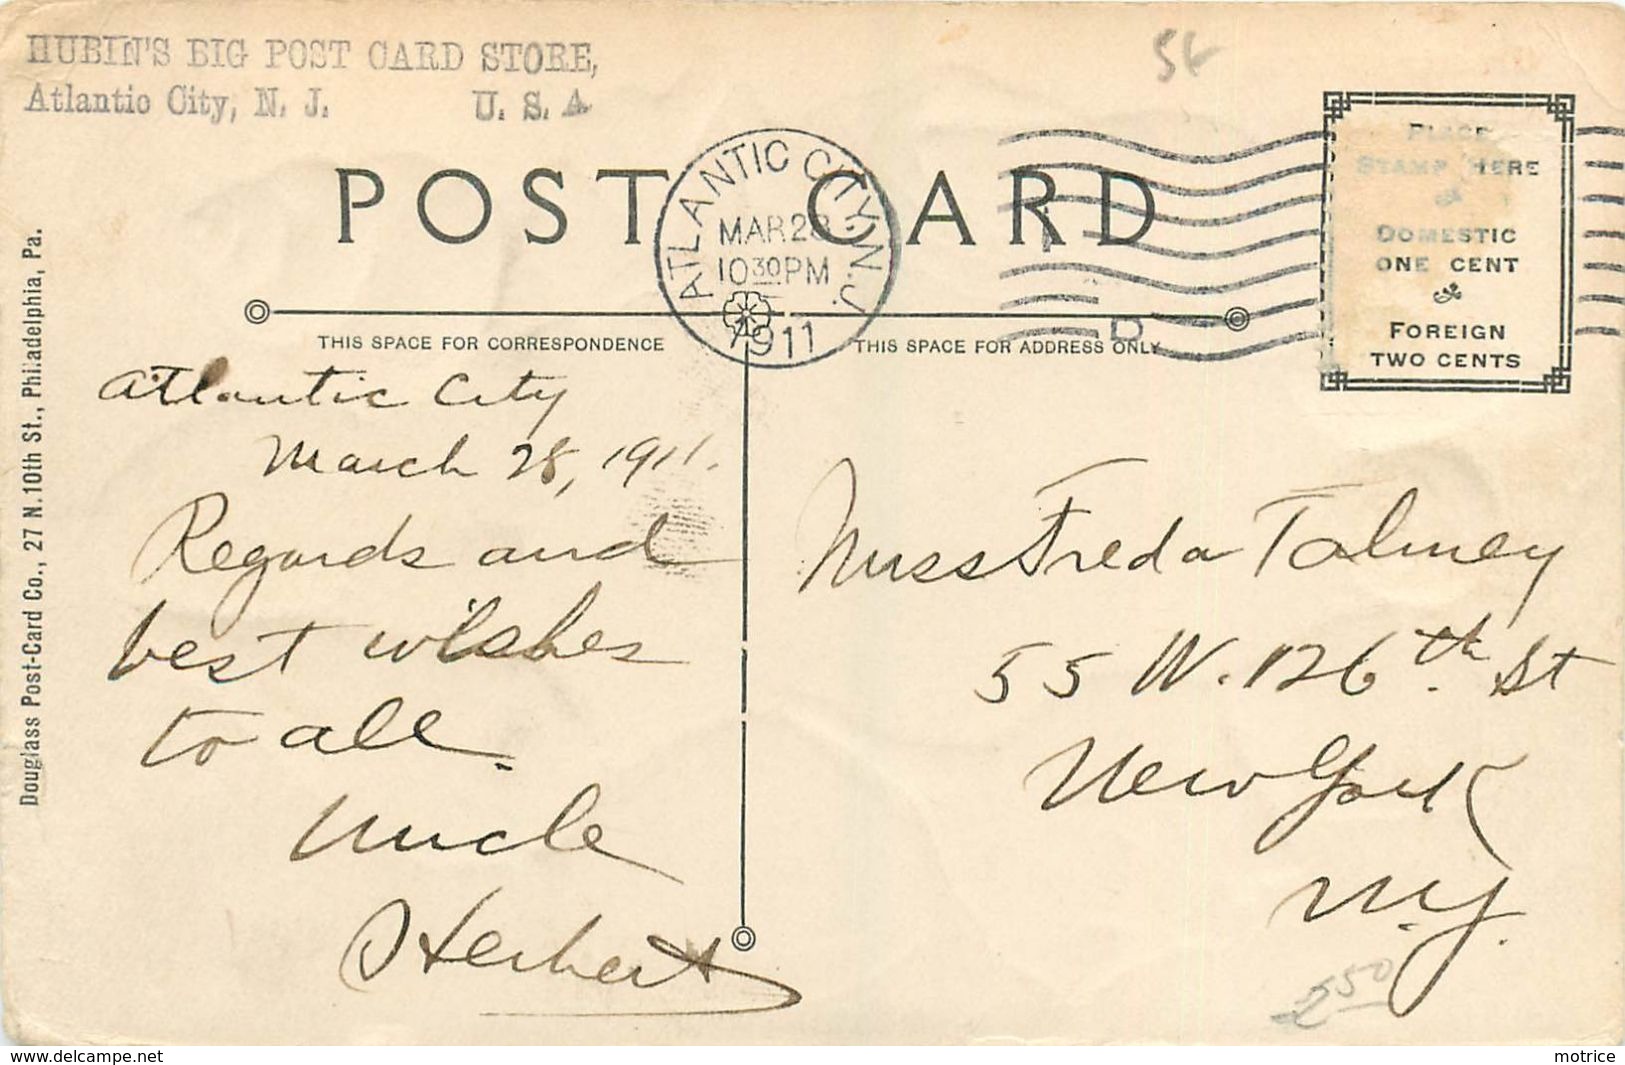 HUBIN'S BIG POST CARD STORE,
Atlantic City, N. J. U. S. A
56
POST CARD
ATLANTIC CITY, N.J.
MAR 28
10 30 PM
1911
D
PLACE
STAMP HERE
DOMESTIC
ONE CENT
FOREIGN
TWO CENTS
THIS SPACE FOR CORRESPONDENCE
THIS SPACE FOR ADDRESS ONLY
Douglass Post-Card Co., 27 N. 10th St., Philadelphia, Pa.
Atlantic City
March 28, 1911.
Regards and
best wishes
to all.
Uncle
Herbert
Miss Freda Talmey
55 W. 126th St
New York
N.Y.
2 50
www.delcampe.net
motrice